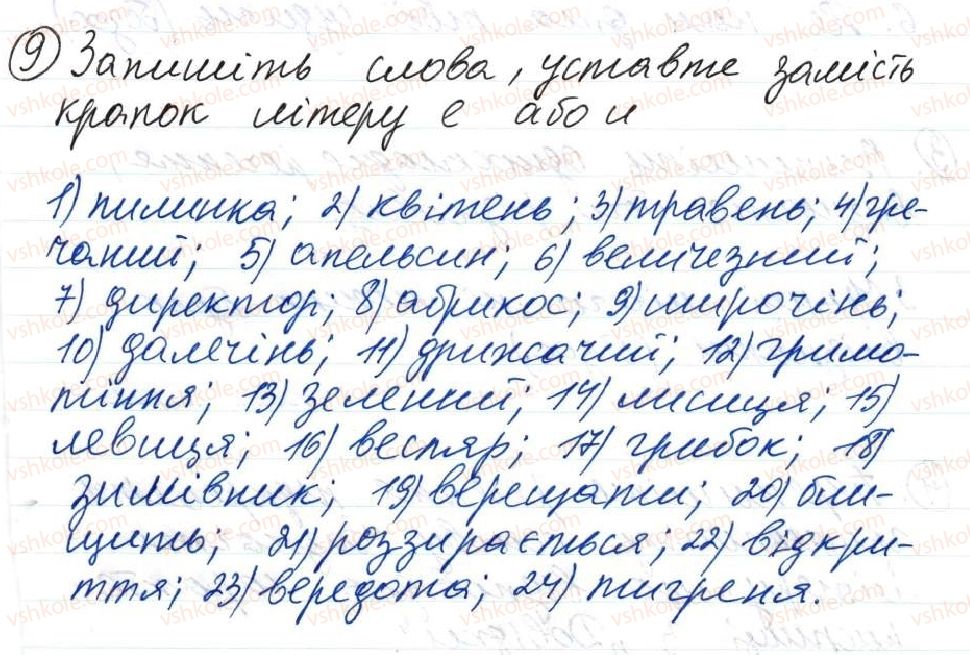 9) Запишіть слова, уставте замість
крапок літеру е або и
1) пилинка; 2) квітень; 3) травень; 4) гре-
чаний; 5) апельсин; 6) величезний;
7) директор; 8) абрикос; 9) широчінь;
10) далечінь; 11) дрижачий; 12) гримо-
тіння; 13) зелений; 14) лисиця; 15)
левиця; 16) весляр; 17) грибок; 18)
зимівник; 19) верещати; 20) бли-
щить; 21) роззирається; 22) відкри-
ття; 23) вередота; 24) тигреня.